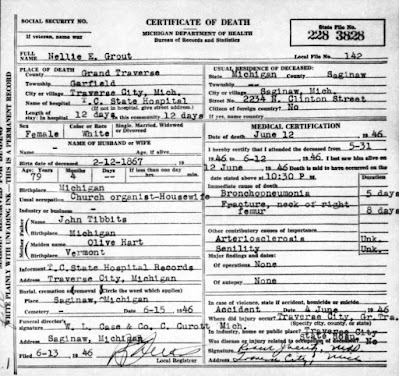 SOCIAL SECURITY NO.
If veteran, name war
CERTIFICATE OF DEATH
MICHIGAN DEPARTMENT OF HEALTH
Bureau of Records and Statistics
State File No.
228 3828
FULL NAME Nellie E. Grout
Local File No. 142
PLACE OF DEATH
County Grand Traverse
Township Garfield
City or village Traverse City, Mich.
Name of hospital T.C. State Hospital
(If not in hospital, give street address.)
Length of stay 12 days In this community 12 days
Sex Color or Race Single, Married, Widowed or Divorced
Female White
NAME OF HUSBAND OR WIFE
Age, if alive
Birth date of deceased 2-12-1867
Age: Years Months Days If less than one day
79 4 hrs. min.
Birthplace Michigan
Usual occupation Church organist-Housewife
Industry or business
Father Name John Tibbits
Birthplace Michigan
Mother Maiden name Olive Hart
Birthplace Vermont
Informant T.C. State Hospital Records
Address Traverse City, Michigan
Burial, cremation or removal (Circle the word which applies)
Place Saginaw, Michigan
Cemetery - Date 6-15 1946
Funeral director's signature W. L. Case & Co, C. Curott Mich.
Address Saginaw, Michigan
Filed 6-13 1946
Local Registrar
USUAL RESIDENCE OF DECEASED:
State Michigan County Saginaw
Township
City or village Saginaw, Mich.
Street No. 2234 N. Clinton Street
If foreign born, how long in U.S.A.?
If yes, name country
MEDICAL CERTIFICATION
Date of death June 12 1946
I hereby certify that I attended the deceased from 5-31
1946 to 6-12 1946 I last saw him alive on
12 June 1946 Death is said to have occurred on the
date stated above at 10:30 P. M.
Immediate cause of death
Bronchopneumonia 5 days
Fracture, neck of right
femur 8 days
Other contributory causes of importance
Arteriosclerosis Unk.
Senility Unk.
Major findings and dates:
Of operations None
Of autopsy None
In case of violence, state if accident, homicide or suicide
Accident Date of 4 June 1946
Where did injury occur? Traverse City, Gr. Tra.
(Specify city, county, or state)
In industry, home or public place? Traverse City State Hosp.
Was disease or injury related to occupation of deceased? No
Signature
Address
WRITE PLAINLY WITH UNFADING INK - THIS IS A PERMANENT RECORD